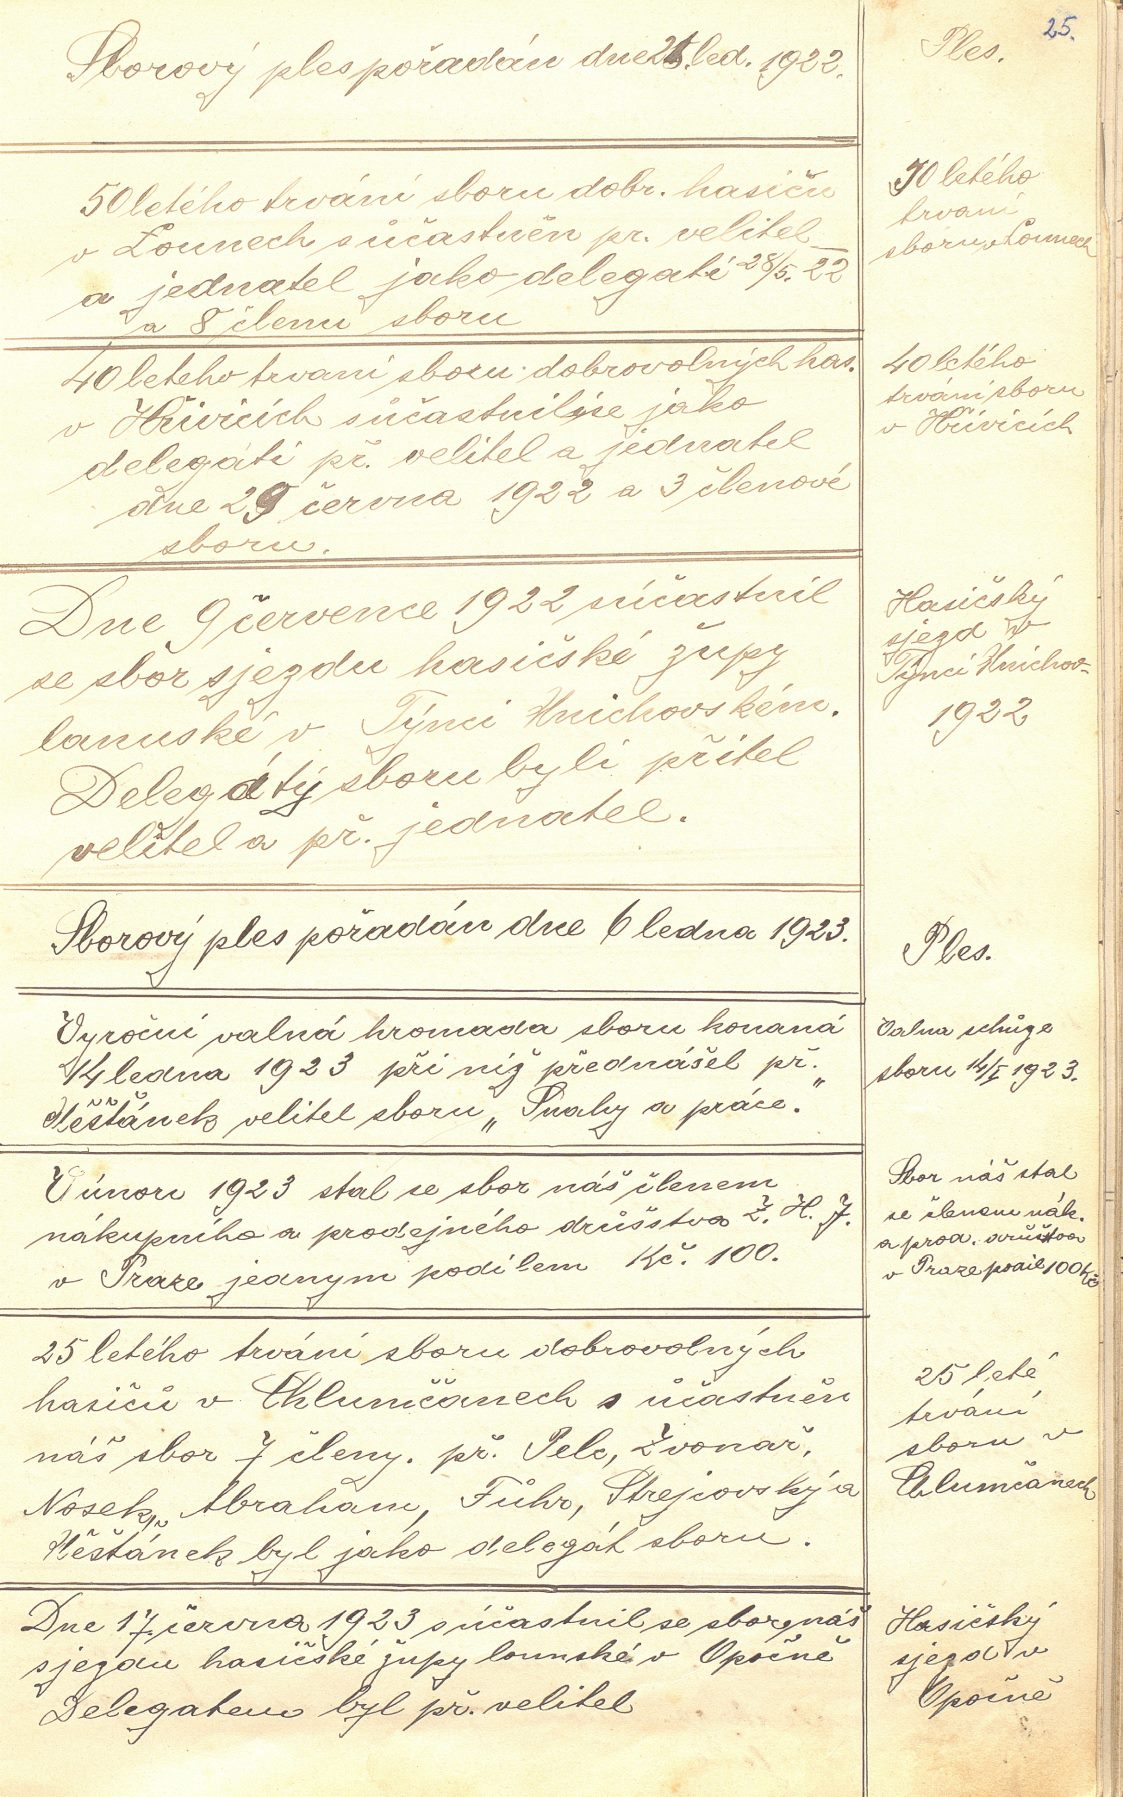 25.
Sborový ples pořadán dne 25. led. 1922.
Ples.
50 letého trvání sboru dobr. hasičů
v Lounech súčastněn pr. velitel
a jednatel jako delegati 28/5. 22
a 8 členu sboru
50 letého
trvani
sboru v Lounech
40 letého trvani sboru dobrovolných has.
v Hřivicích súčastnili se jako
delegáti př. velitel a jednatel
dne 29 června 1922 a 3 členové
sboru.
40 letého
trvání sboru
v Hřivicích
Dne 9 července 1922 súčastnil
se sbor sjezdu hasičské župy
lounské v Týnci Hnichovském.
Delegáty sboru byli přitel
velitel a př. jednatel.
Hasičský
sjezd v
Týnci Hnichov-
1922
Sborový ples pořadán dne 6 ledna 1923.
Ples.
Vyroční valná hromada sboru konaná
14 ledna 1923 při níž přednášel př.
Měšťánek velitel sboru „Snahy a práce."
Valna schůze
sboru 14/I 1923.
V únoru 1923 stal se sbor náš členem
nákupního a prodejného družstva Z. H. J.
v Praze jedným podílem Kč. 100.
Sbor náš stal
se členem nák.
a prod. družstva
v Praze podil 100 Kč
25 letého trvání sboru dobrovolných
hasičů v Chlumčanech s účastněn
náš sbor 7 členy. př. Pelc, Zvonař,
Nosek, Abraham, Führ, Strejcovský a
Měšťánek byl jako delegát sboru.
25 leté
trvání
sboru v
Chlumčanech
Dne 17 června 1923 súčastnil se sbor náš
sjezdu hasičské župy lounské v Opočně
Delegatem byl př. velitel
Hasičský
sjezd v
Opočně